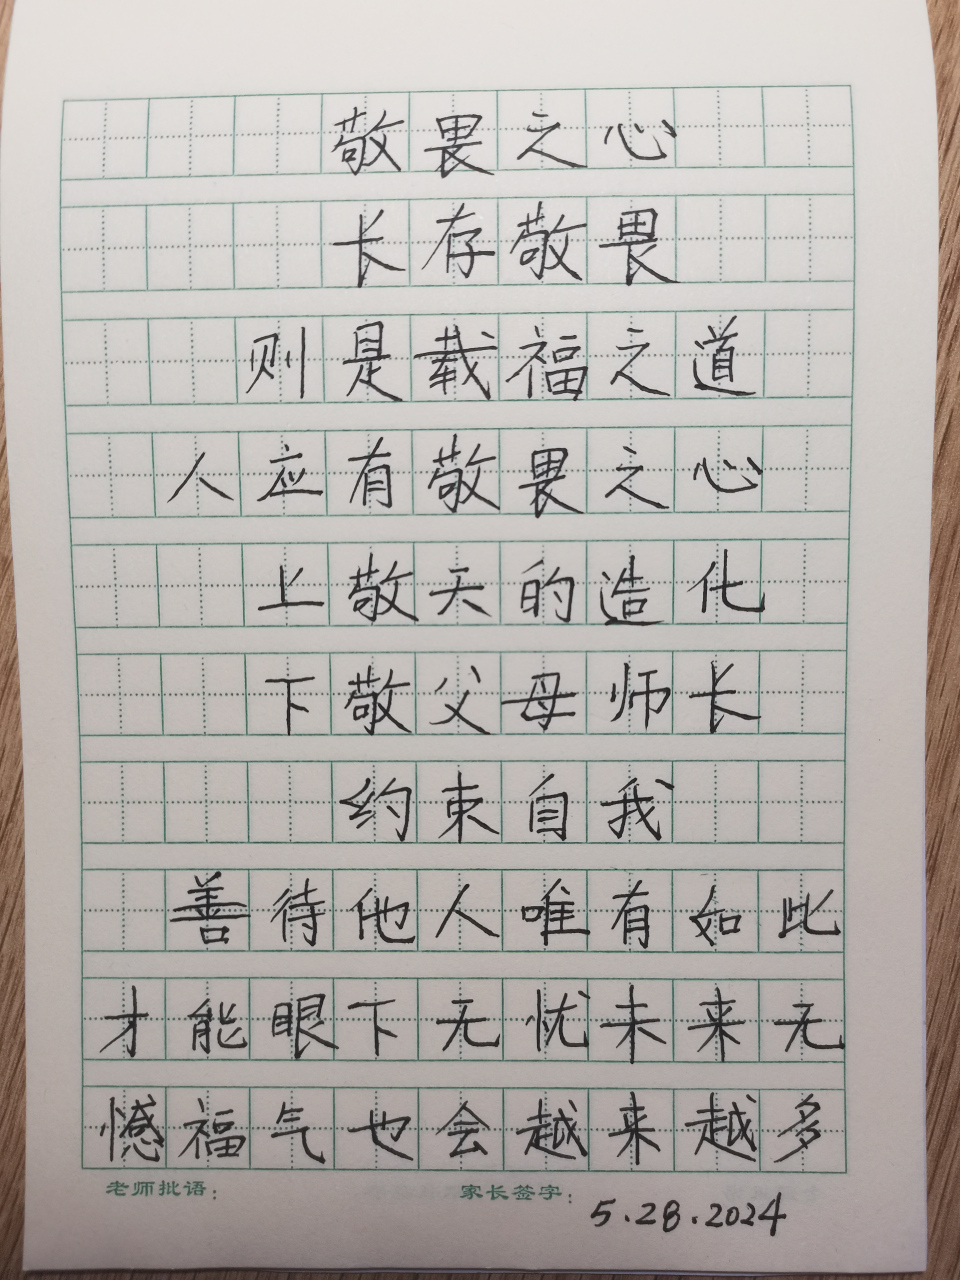 敬畏之心
长存敬畏
则是载福之道
人应有敬畏之心
上敬天的造化
下敬父母师长
约束自我
善待他人唯有如此
才能眼下无忧未来无
憾福气也会越来越多
老师批语：
家长签字：
5.28.2024